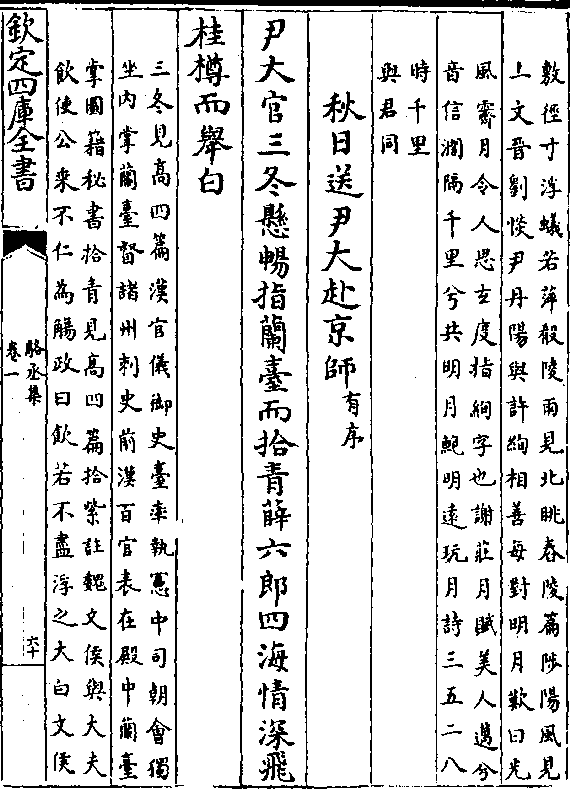 敷徑寸浮蟻若萍殽陵雨見北眺舂陵篇陟陽風見
上文晉劉惔尹丹陽與許絢相善每對明月歎曰光
風霽月令人思玄度指絢字也謝莊月賦美人邁兮
音信濶隔千里兮共明月鮑明遠玩月詩三五二八
時千里
與君同
秋日送尹大赴京師有序
尹大官三冬懸暢指蘭臺而拾青薛六郎四海情深飛
桂樽而舉白
三冬見髙四篇漢官儀御史臺率執憲中司朝會獨
坐内掌蘭臺督諸州刺史前漢百官表在殿中蘭臺
掌圖籍秘書拾青見髙四篇拾紫註魏文侯與大夫
飲使公乗不仁為觴政曰飲若不盡浮之大白文侯
欽定四庫全書
駱丞集
卷一
六十